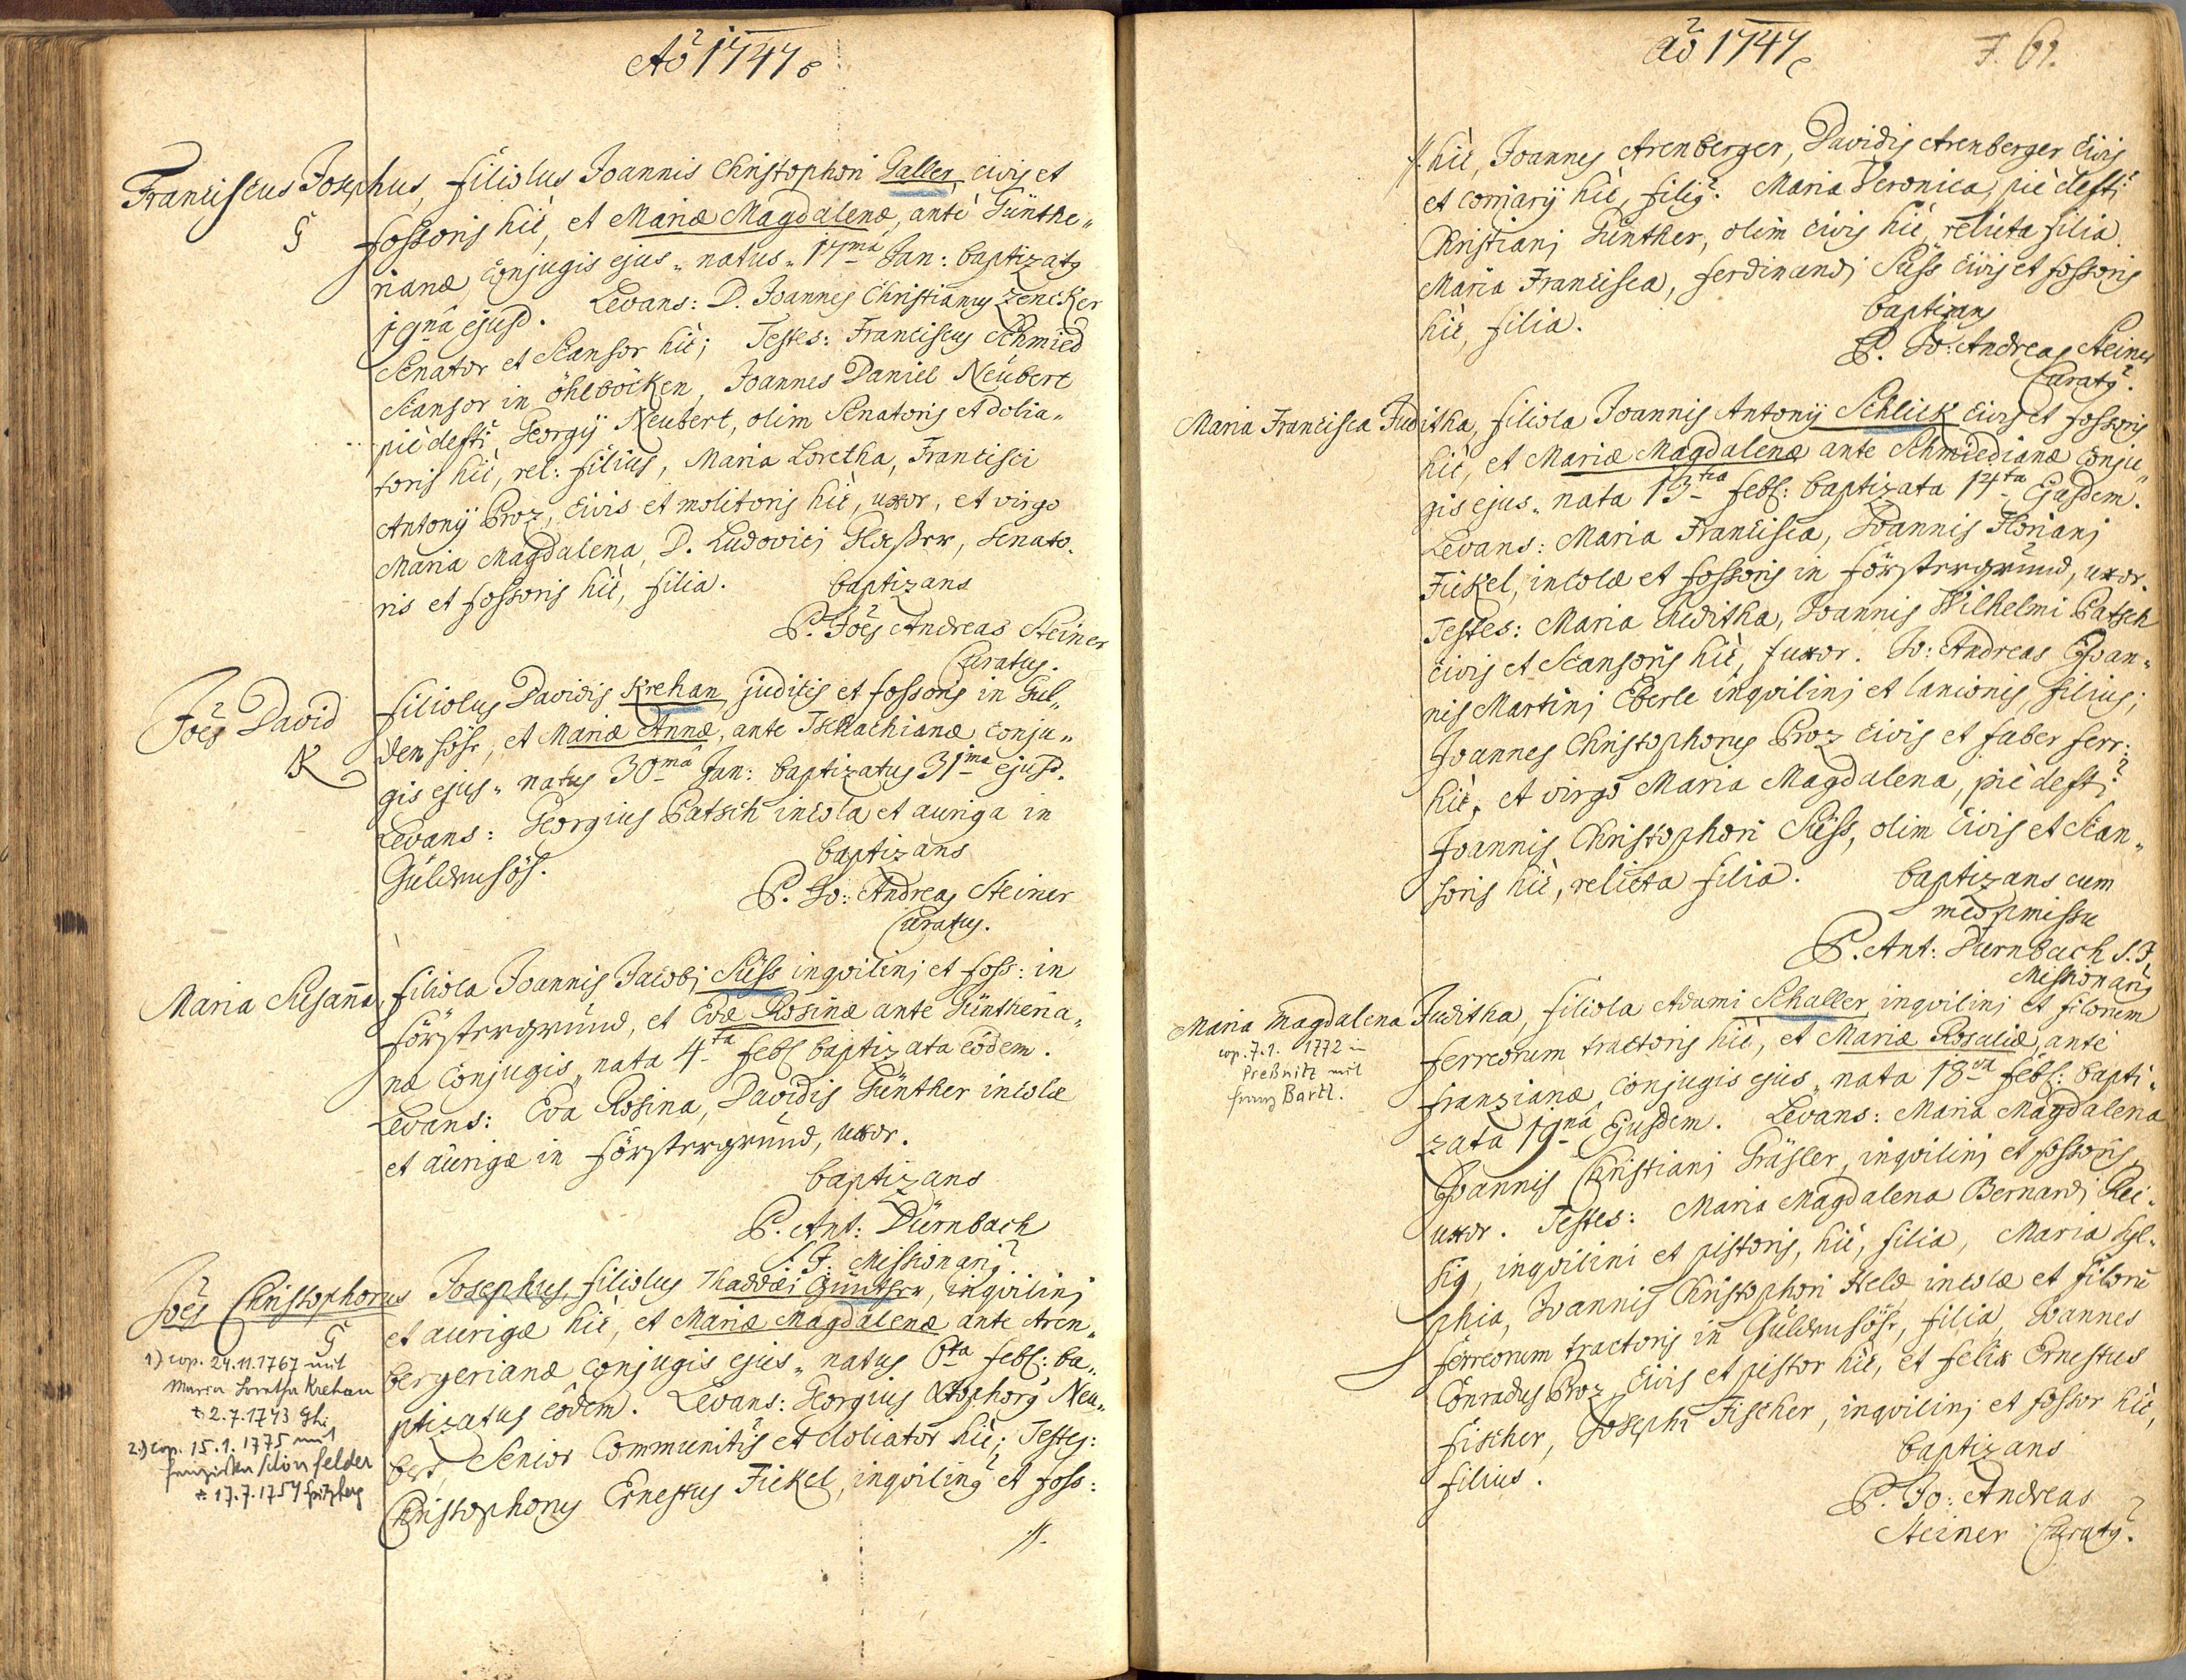 Aõ 1747
Franciscus Josephus, filiolus Joannis Christophori Galler, civis et
§ fossoris hic, et Mariæ Magdalenæ, antè Günthe„
rianæ conjugis ejus„ natus„ 17mâ Jan: baptizatq
19nâ ejusd. Levans: D. Joannes Christianus Zencker
Senator et Scansor hic; Testes: Franciscus Schmied
Scansor in öhlböcken, Joannes Daniel Neübert
piè defti Georgÿ Neubert, olim Senatoris et dolia„
toris hic, rel: filius, Maria Loretha, Francisci
Antonÿ Proz, civis et molitoris hic, uxor, et virgo
Maria Magdalena, D. Ludovici Glaßer, Senato„
ris et fossoris hic, filia. baptizans
P. Joẽs Andreas Steiner
Curatus.
Joẽs David filiolus Davidis Krehan, judicis et fossoris in Gul„
K denhöhe, et Mariæ Annæ, ante Tschachianæ conju„
gis ejus„ natus 30mâ Jan: baptizatus 31mâ ejusd.
Levans: Georgius Patsch incola et auriga in
Güldenhöh. baptizans
P. Jo: Andreas Steiner
Curatus.
Maria Susaña, filiola Joannis Jacobj Süss inqvilinj et foss: in
Förstergrund, et Evæ Rosinæ ante Güntheria„
næ conjugis„ nata 4ta feb: baptizata eõdem.
Levans: Eva Rosina, Davidis Günther incolæ
et aurigæ in Förstergrund, uxor.
baptizans
P. Ant: Dürnbach
S. J. Missionari9
Joẽs Christophorus Josephus, filiolus Thaddæi Günther, inqvilinj
§ et aurigæ hic, et Mariæ Magdalenæ ante Aren„
bergerianæ conjugis ejus„ natus 6ta feb: ba„
ptizatus eõdem. Levans: Georgius Xstophorq Neu„
bert, Senior Communitatis et doliator hic; Testes:
Christophorus Ernestus Fickel, inqvilinq et foss:
//.
1) cop. 24.11.1767 mit
Maria Loretha Krehan
*. 2.7.1743 Gh.
2.) cop. 15.1.1775 mit
Franziska Schönfelder
*. 17.7.1754 Spitzberg
aõ 1747
F. 61.
//. hic, Joannes Arenberger, Davidis Arenberger civis
et corriarÿ hic, filiq. Maria Veronica, piè defti
Christianj Günther, olim civis hic, relicta filia.
Maria Francisca, Ferdinandj Süss civis et fossoris
hic, filia. baptizans
P. Jo: Andreas Steiner
Curatq.
Maria Francisca Juditha, filiola Joannis Antonÿ Schlick civis et fossoris
hic, et Mariæ Magdalenæ ante Schmiedianæ conju„
gis ejus„ nata 13tia feb: baptizata 14ta Ejusdem.
Levans: Maria Francisca, Joannis Florianj
Fickel, incolæ et fossoris in Förstergrund, uxor.
Testes: Maria Juditha, Joannis Wilhelmi Patsch
civis et Scansoris hic, uxor. Jo: Andreas Joan„
nis Martinj Eberle inqvilinj et lanionis, filius;
Joannes Christophorus Proz civis et faber ferr:
hic, et virgo Maria Magdalena, piè defti
Joannis Christophori Süss, olim civis et Scan„
soris hic, relicta filia. baptizans cum
meo pmissu
P. Ant: Durnbach S. J.
Missionari9
Maria Magdalena Juditha, filiola Adami Schaller inqvilinj et filorum
ferreorum tractoris hic, et Mariæ Rosaliæ, ante
Franzianæ, conjugis ejus„ nata 18va feb: bapti„
zata 19nâ Ejusdem. Levans: Maria Magdalena
Joannis Christianj Gräsler, inqvilinj et fossoris,
uxor. Testes: Maria Magdalena Bernardj Rei„
sig, inqvilini et pistoris, hic, filia, Maria So„
phia, Joannis Christophori Held incolæ et filorũ
ferreorum tractoris in Güldenhöhe, filia, Joannes
Conradus Proz civis et pistor hic, et Felix Ernestus
Fischer, Josephi Fischer, inqvilinj et fossor hic,
filius. baptizans
P. Jo: Andreas
Steiner Curatq.
cop. 7.1. 1772 in
Preßnitz mit
Franz Bartl.